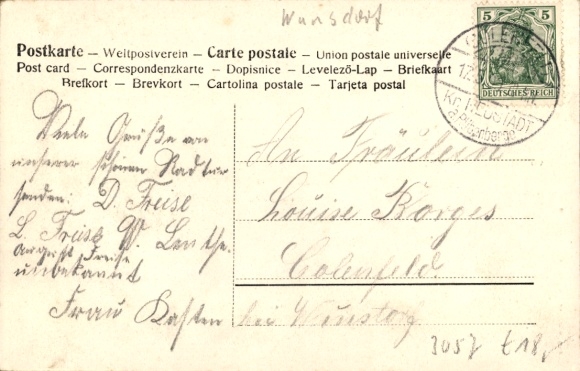 Wunsdorf
Postkarte – Weltpostverein – Carte postale – Union postale universelle
Post card – Correspondenzkarte – Dopisnice – Levelező-Lap – Briefkaart
Brefkort – Brevkort – Cartolina postale – Tarjeta postal
5 5
DEUTSCHES REICH
Kr. NEUSTADT
a. Rübenberge
Viele Grüße von
unserer schönen Radtur
senden: D. Freise
L. Freise W. Lenthe
August Freise
unbekannt
Frau Kasten
An Fräulein
Louise Borges
Colenfeld
bei Wunstorf
3057 €18,-